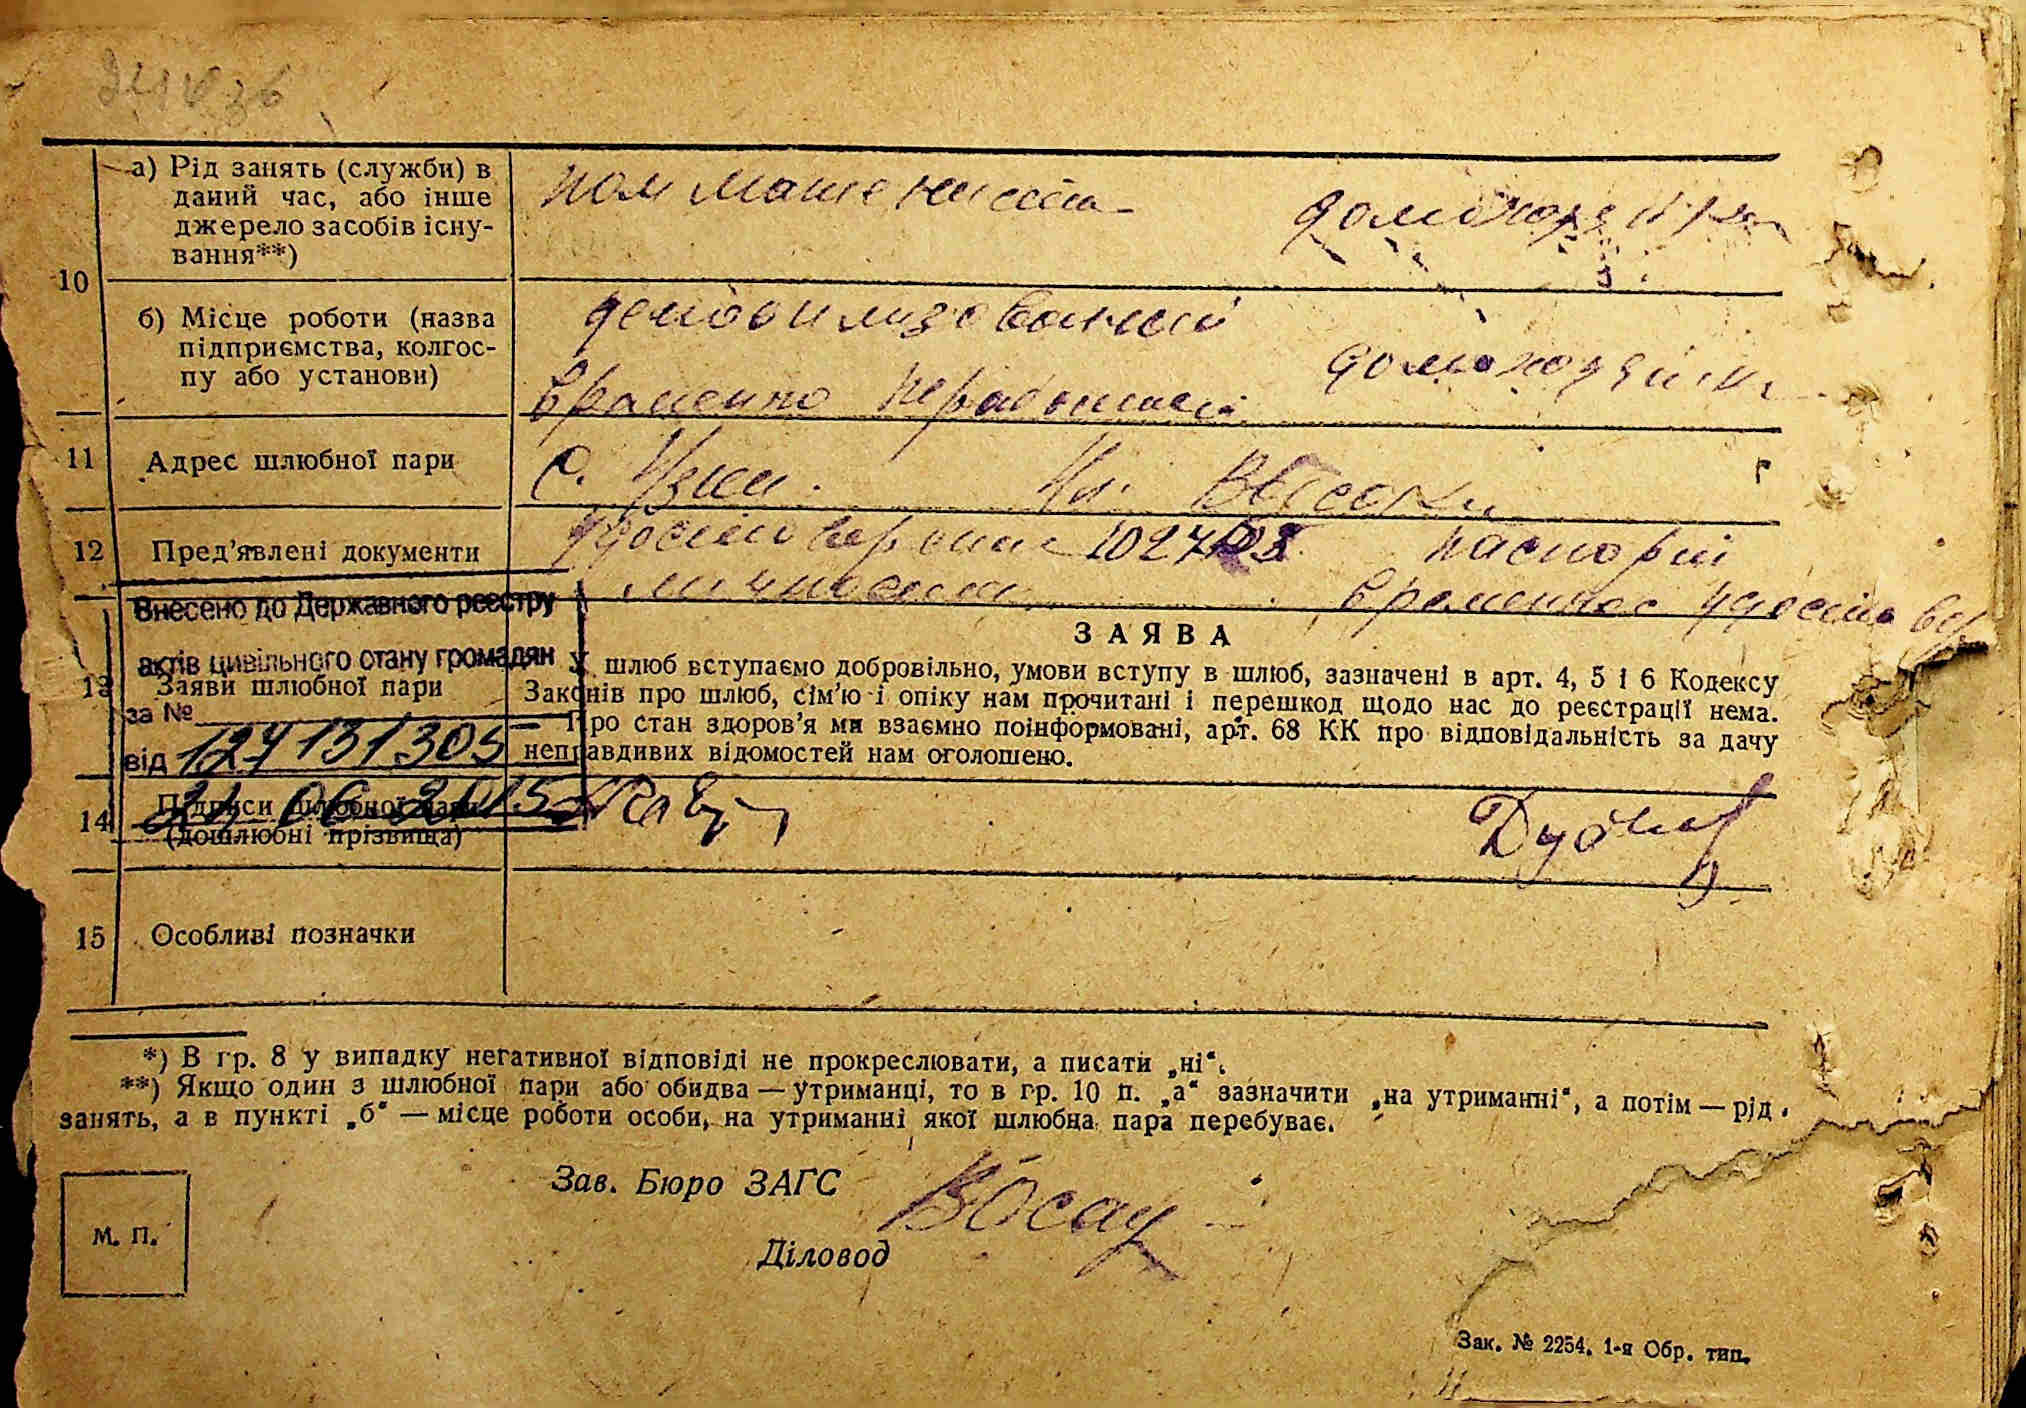 а) Рід занять (служби) в
даний час, або інше
джерело засобів існу-
вання**)
пом машениста
домохозяйка
10
б) Місце роботи (назва
підприємства, колгос-
пу або установи)
демобилизованый
временно неработает
домохозяйка
11 Адрес шлюбної пари
с. Узин. Ул. Высокая
12 Пред’явлені документи
удостоверение
личности
паспорт
временное удостов
Внесено до Державного реєстру
актів цивільного стану громадян
за №
124131305
від
06 2015
13 Заяви шлюбної пари
ЗАЯВА
У шлюб вступаємо добровільно, умови вступу в шлюб, зазначені в арт. 4, 5 і 6 Кодексу
Законів про шлюб, сім’ю і опіку нам прочитані і перешкод щодо нас до реєстрації нема.
Про стан здоров’я ми взаємно поінформовані, арт. 68 КК про відповідальність за дачу
неправдивих відомостей нам оголошено.
14 Підписи шлюбної пари
(дошлюбні прізвища)
15 Особливі позначки
*) В гр. 8 у випадку негативної відповіді не прокреслювати, а писати „ні“.
**) Якщо один з шлюбної пари або обидва — утриманці, то в гр. 10 п. „а“ зазначити „на утриманні“, а потім — рід
занять, а в пункті „б“ — місце роботи особи, на утриманні якої шлюбна пара перебуває.
Зав. Бюро ЗАГС
Діловод
М. П.
Зак. № 2254. 1-я Обр. тип.